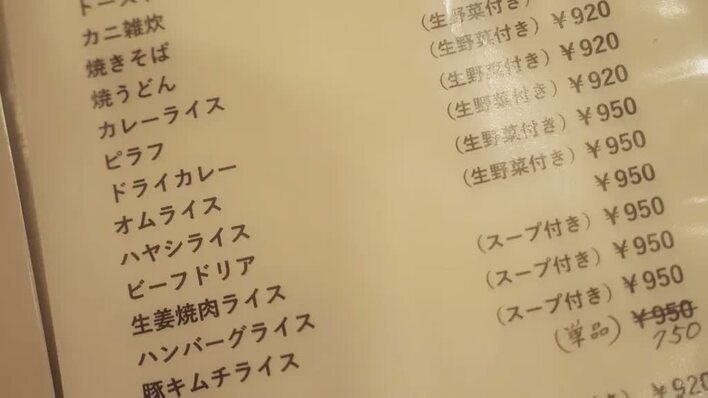 カニ雑炊
焼きそば
焼うどん
カレーライス
ピラフ
ドライカレー
オムライス
ハヤシライス
ビーフドリア
生姜焼肉ライス
ハンバーグライス
豚キムチライス
(生野菜付き)
(生野菜付き) ¥920
(生野菜付き) ¥920
(生野菜付き) ¥920
(生野菜付き) ¥950
(生野菜付き) ¥950
¥950
(スープ付き) ¥950
(スープ付き) ¥950
(スープ付き) ¥950
(単品) ¥950
750
¥920